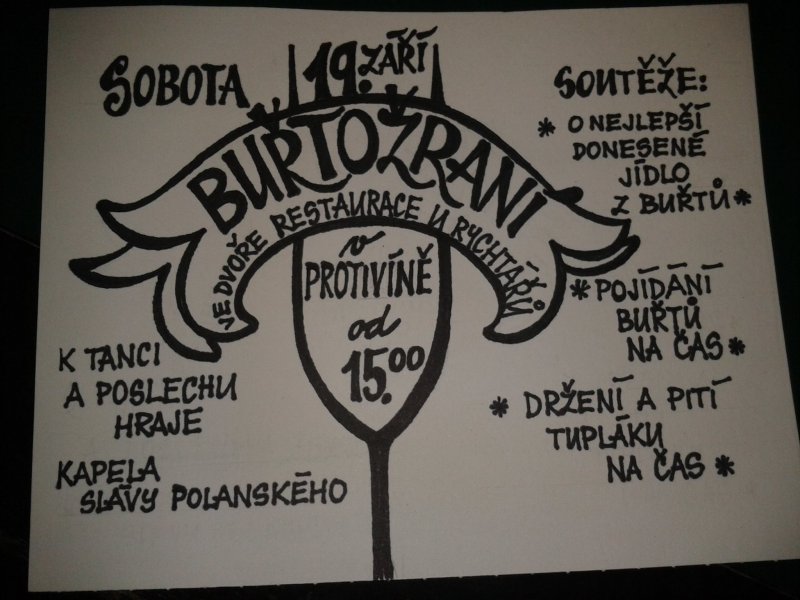 SOBOTA 19. ZÁŘÍ
BUŘTOŽRANÍ
VE DVOŘE RESTAURACE U RYCHTÁŘŮ
v
PROTIVÍNĚ
od
15.00
K TANCI
A POSLECHU
HRAJE
KAPELA
SLÁVY POLANSKÉHO
SOUTĚŽE:
* O NEJLEPŠÍ
DONESENÉ
JÍDLO
Z BUŘTŮ *
* POJÍDÁNÍ
BUŘTŮ
NA ČAS *
* DRŽENÍ A PITÍ
TUPLÁKU
NA ČAS *